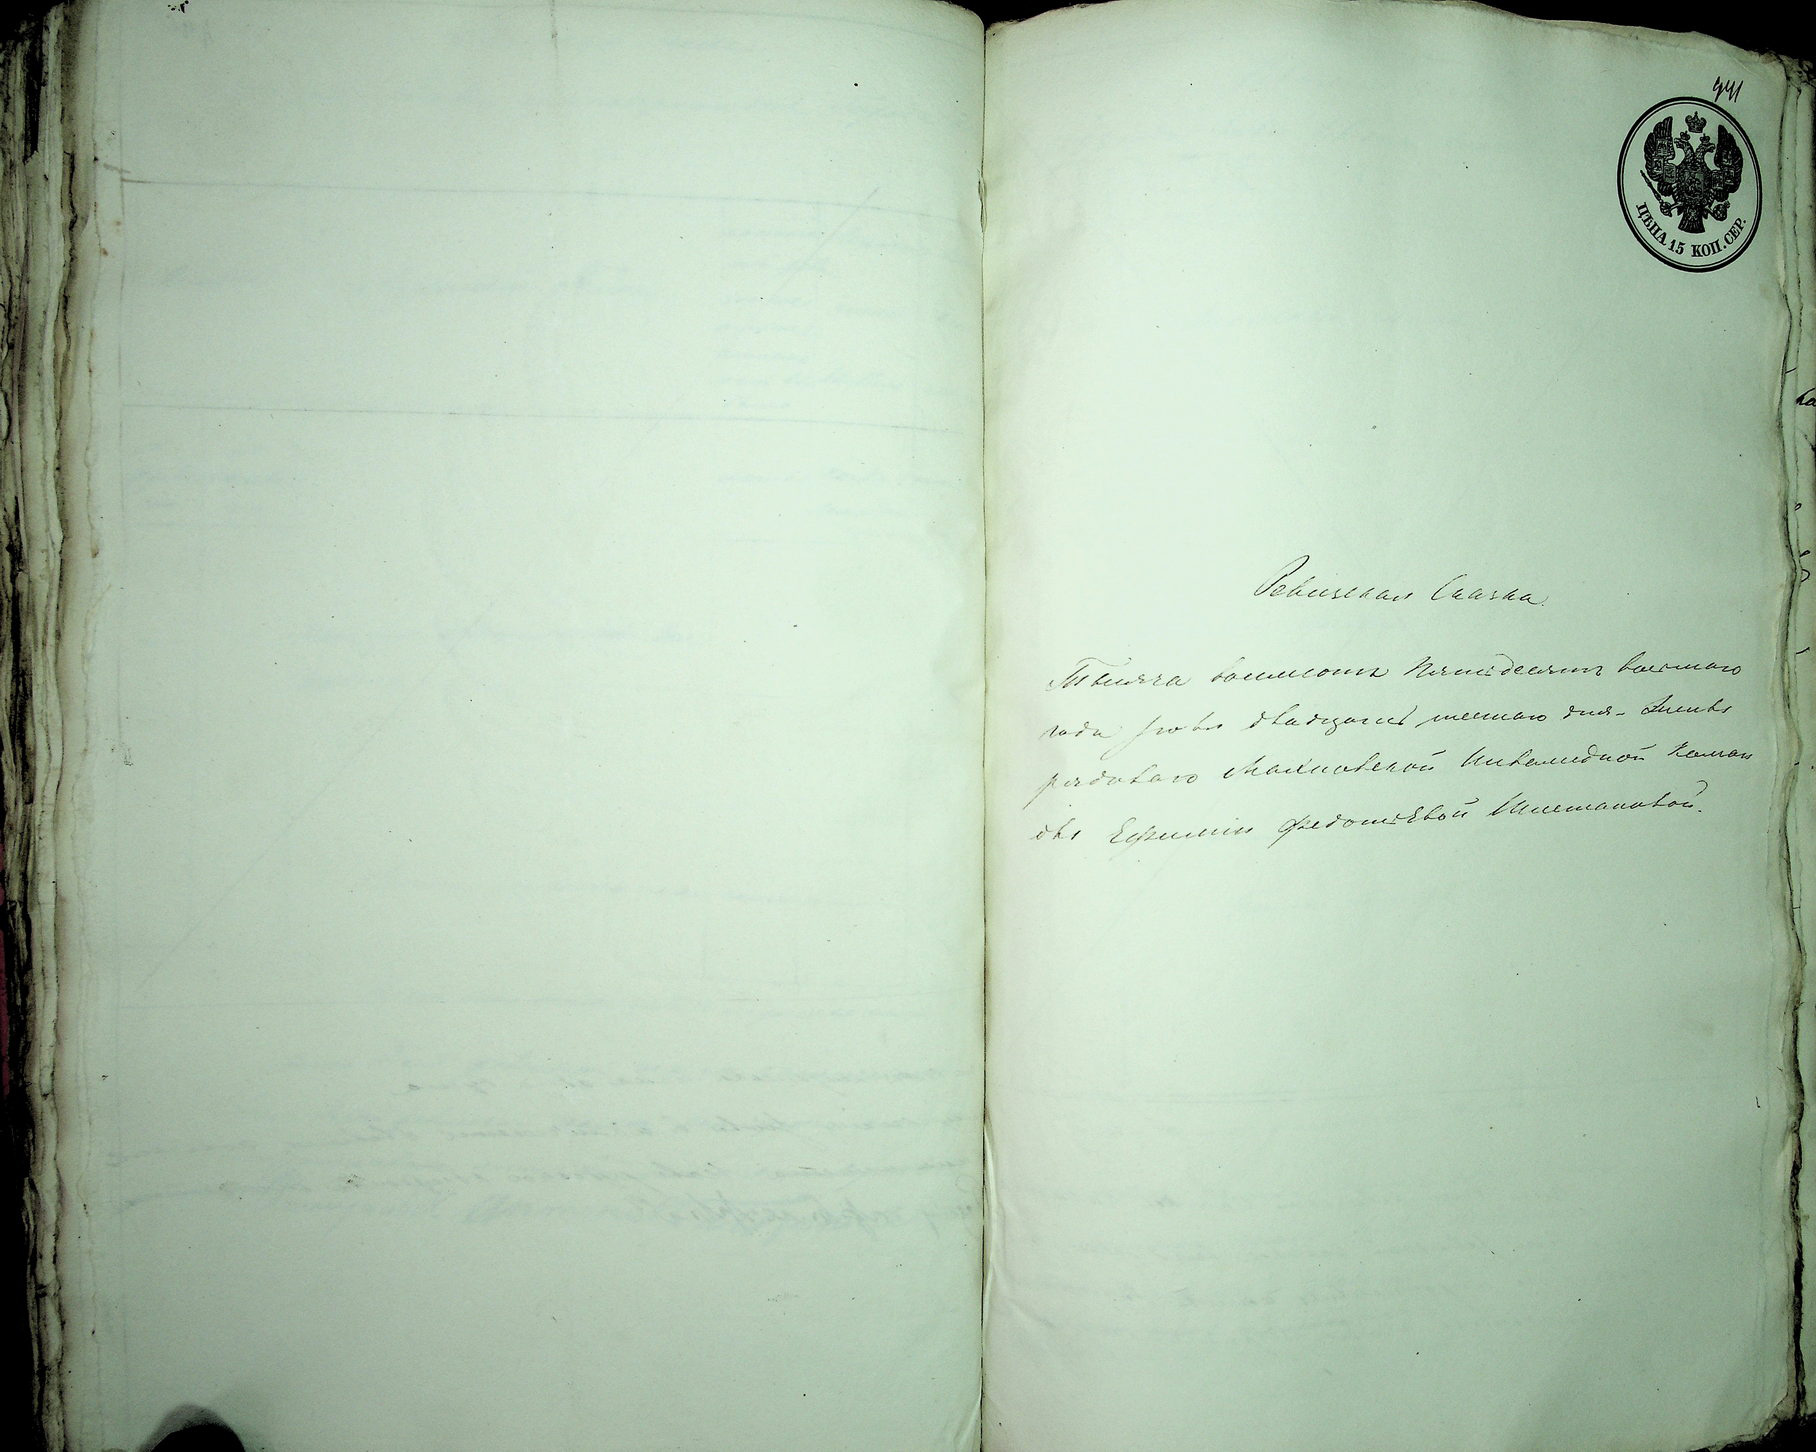 941
ЦѢНА 15 КОП. СЕР.
Ревизская Сказка
Тысяча восемсотъ Пятьдесятъ восьмаго
года двадцать шестаго дня
рядоваго Махновской Инвалидной Коман
ды Ефиміи Федотьевой